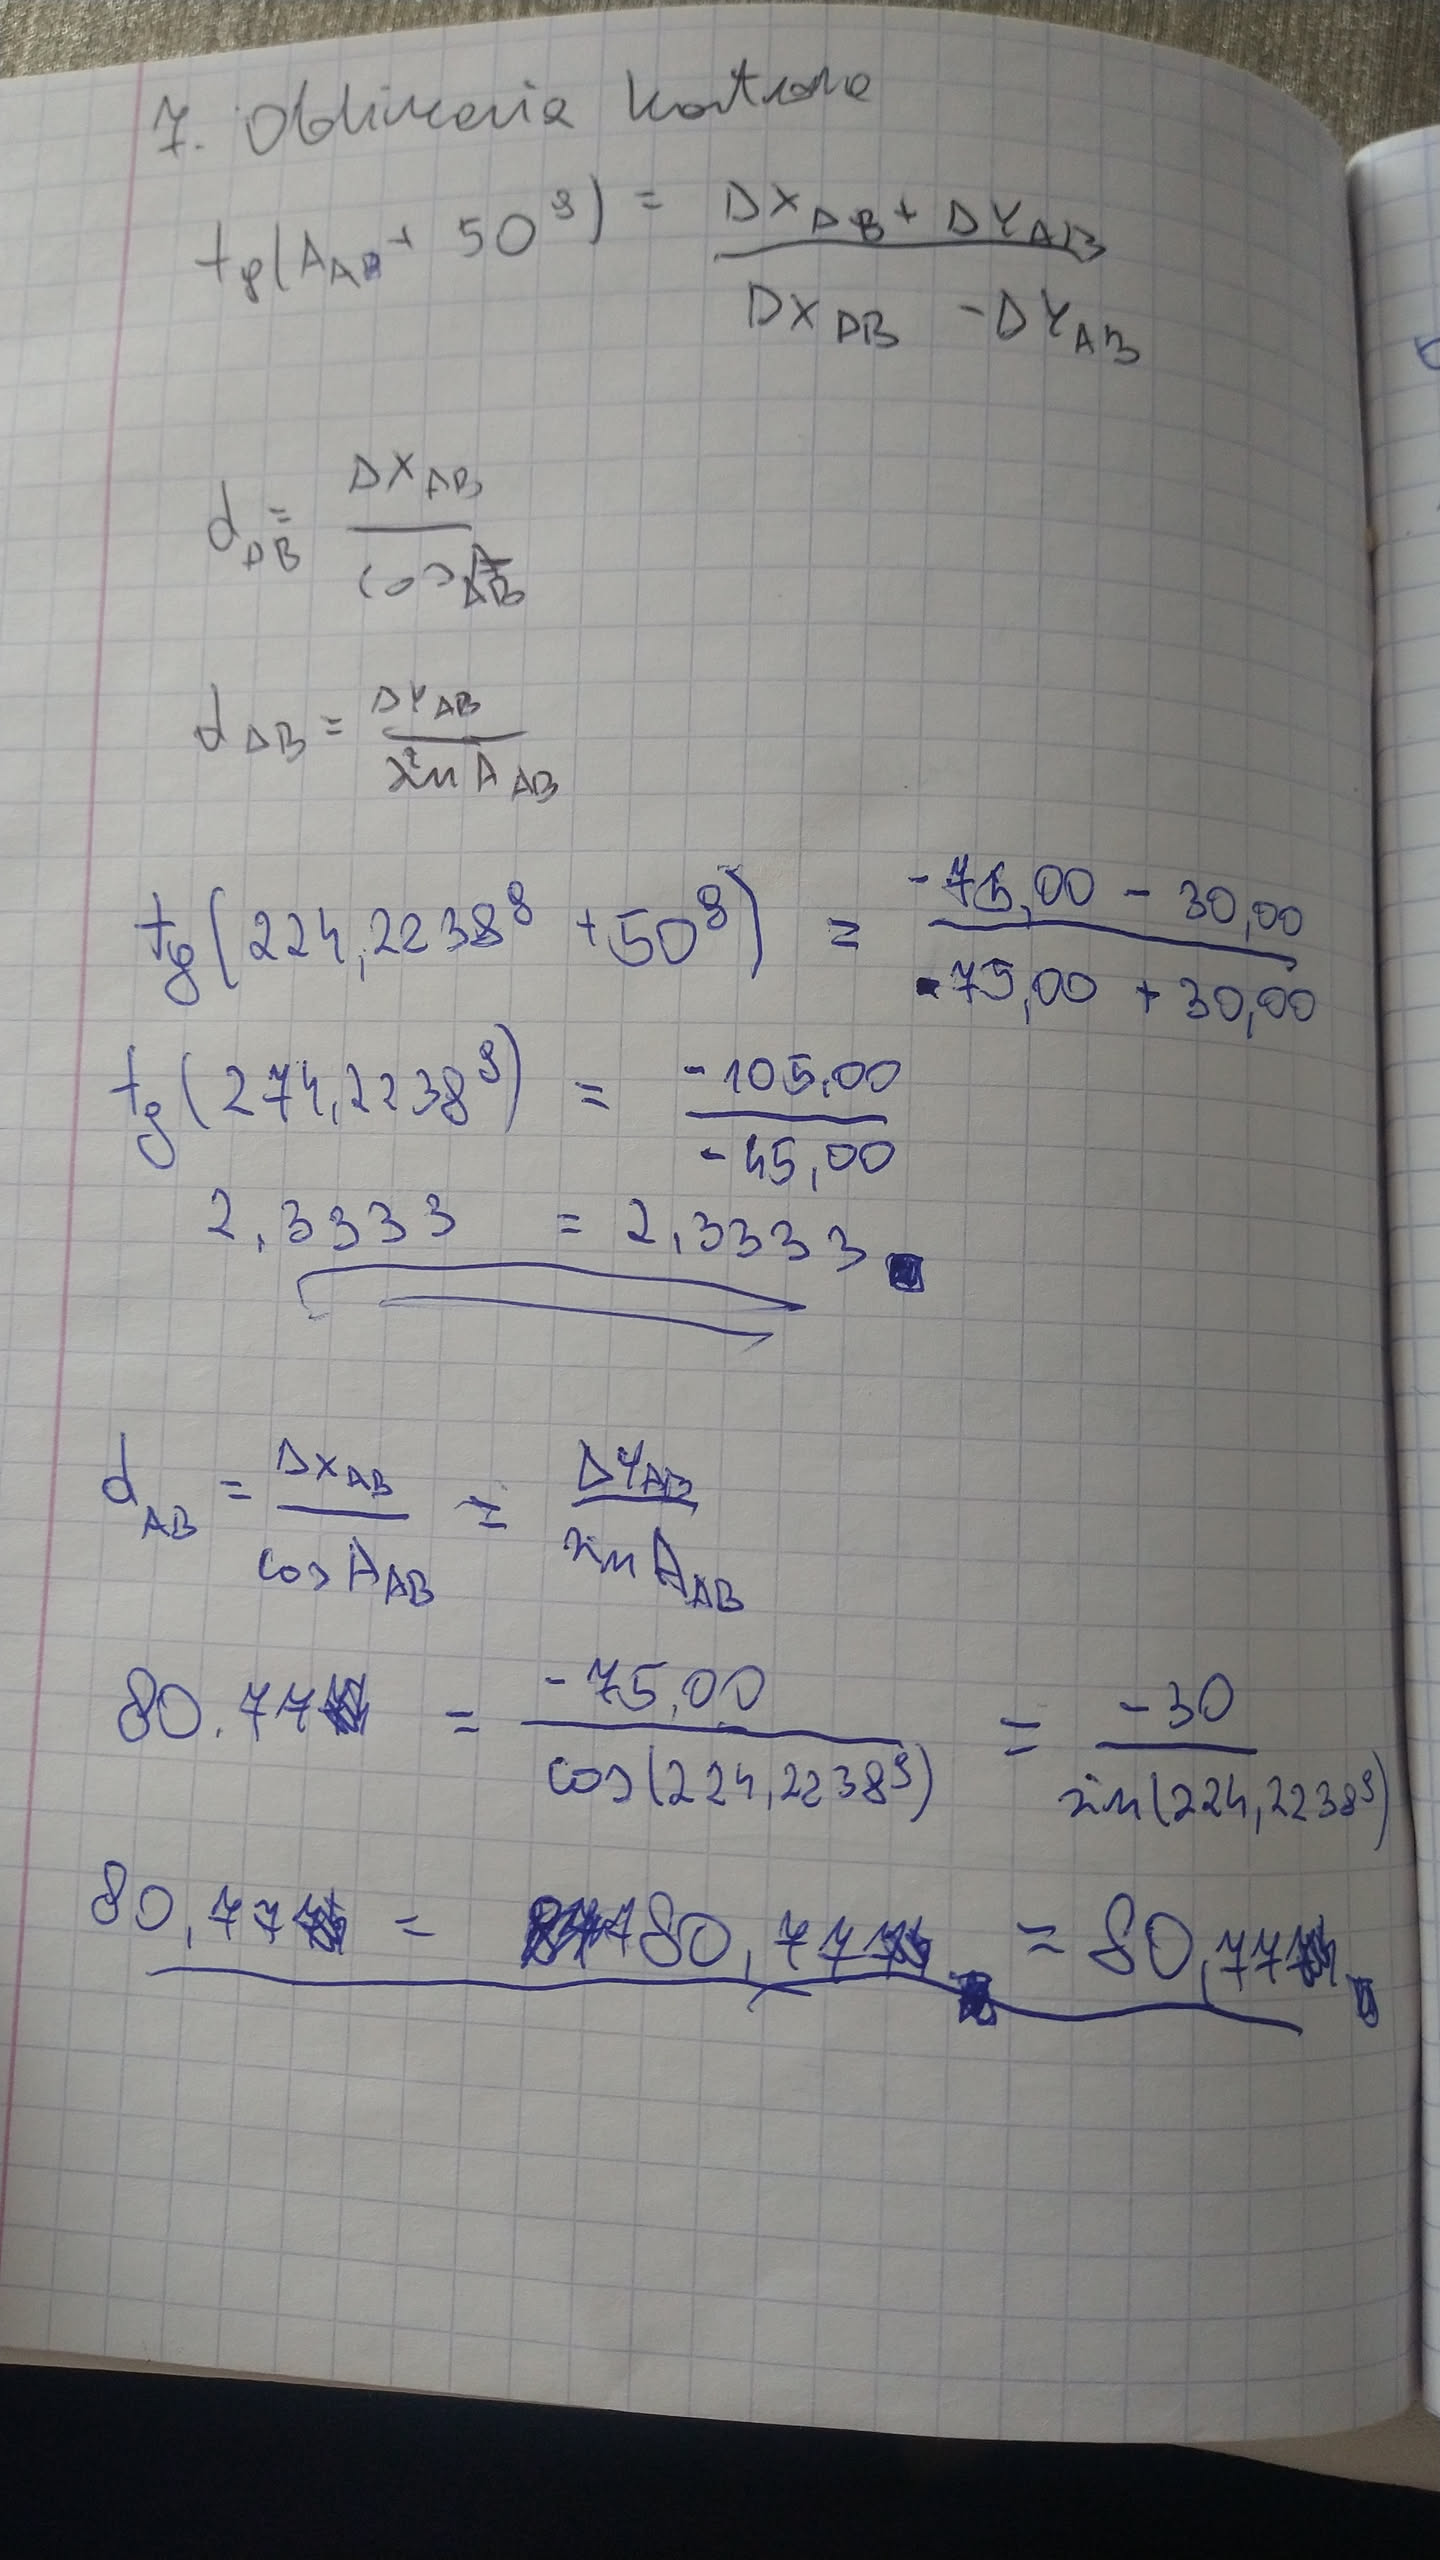 7. Obliczenia kontrolne
tg(A_AB + 50^g) = (ΔX_AB + ΔY_AB) / (ΔX_AB - ΔY_AB)
d_AB = ΔX_AB / cos A_AB
d_AB = ΔY_AB / sin A_AB
tg(224,2238^g + 50^g) = (-75,00 - 30,00) / (-75,00 + 30,00)
tg(274,2238^g) = -105,00 / -45,00
2,3333 = 2,3333
d_AB = ΔX_AB / cos A_AB = ΔY_AB / sin A_AB
80.77 = -75,00 / cos(224,2238^g) = -30 / sin(224,2238^g)
80,77 = 80,77 = 80,77